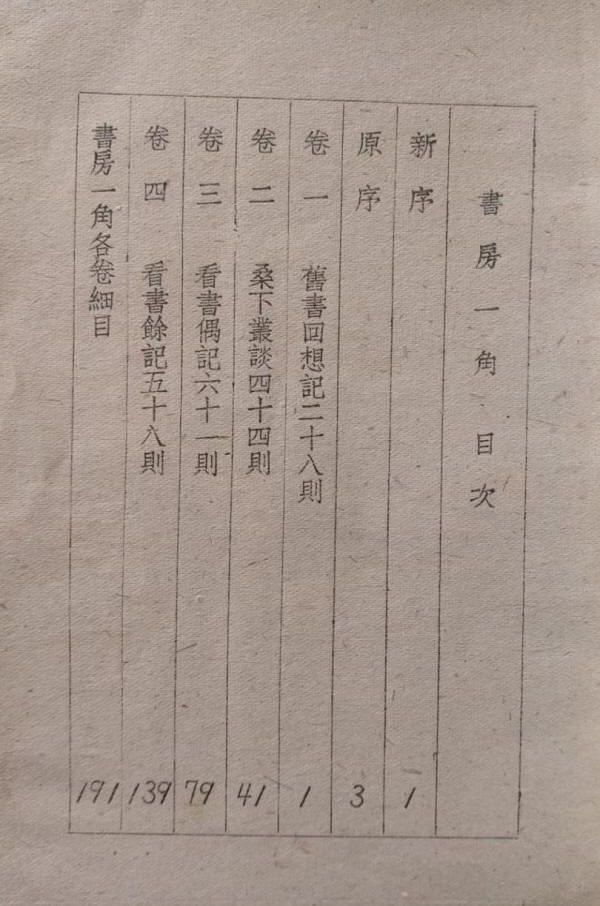 書房一角 目次
新序 1
原序 3
卷一 舊書回想記二十八則 1
卷二 桑下叢談四十四則 41
卷三 看書偶記六十一則 79
卷四 看書餘記五十八則 139
書房一角各卷細目 191